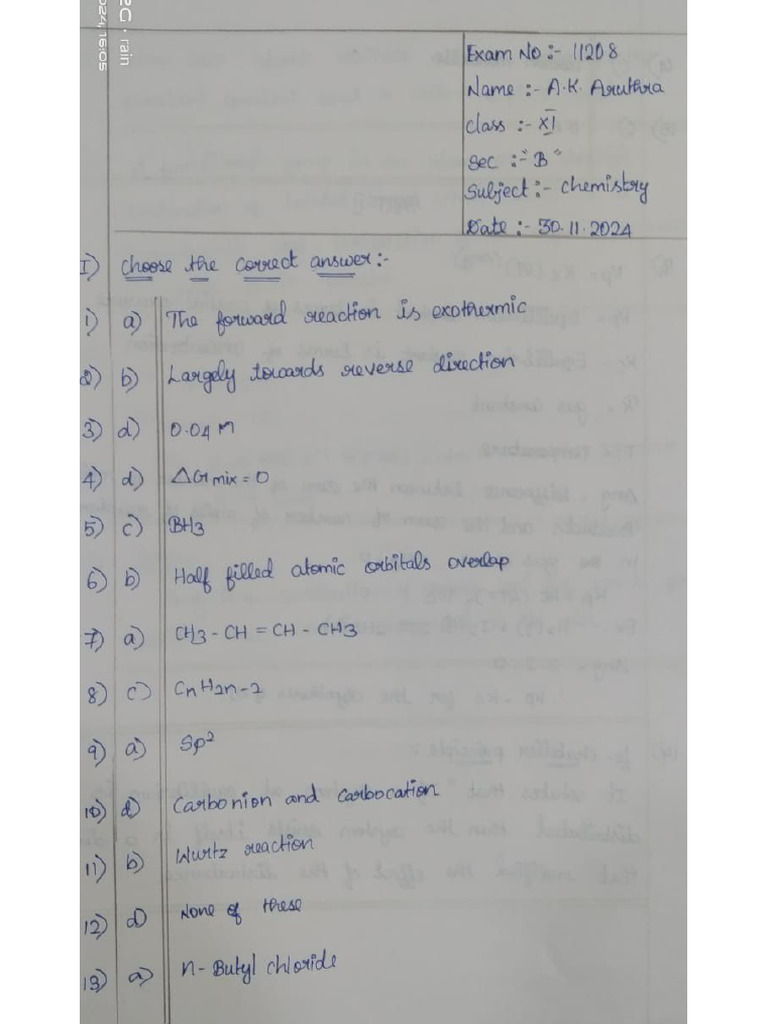 2G · rain
024, 16:05
Exam No :- 11208
Name :- A.K. Aruthra
class :- XI
Sec :- "B"
Subject :- chemistry
Date :- 30.11.2024
I) Choose the correct answer :-
1) a) The forward reaction is exothermic
2) b) Largely towards reverse direction
3) d) 0.04 M
4) d) ΔGmix = 0
5) c) BH3
6) b) Half filled atomic orbitals overlap
7) a) CH3 - CH = CH - CH3
8) c) CnH2n-2
9) a) Sp²
10) d) Carbonion and carbocation
11) b) Wurtz reaction
12) d) None of these
13) a) n - Butyl chloride